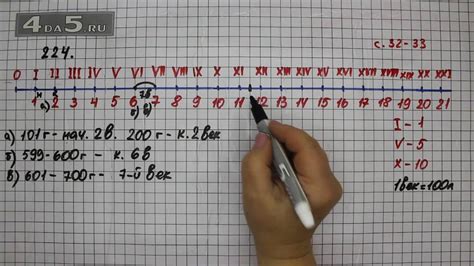 4DA5.RU
224.
с. 32-33
0 I II III IV V VI VII VIII IX X XI XII XIII XIV XV XVI XVII XVIII XIX XX XXI
7в
1 2 3 4 5 6 7 8 9 10 11 12 13 14 15 16 17 18 19 20 21
а) б) в)
а) 101г - нач. 2в. 200г - к. 2 век
б) 599-600г - к. 6в
в) 601-700г - 7-й век
I - 1
V - 5
X - 10
1век=100л